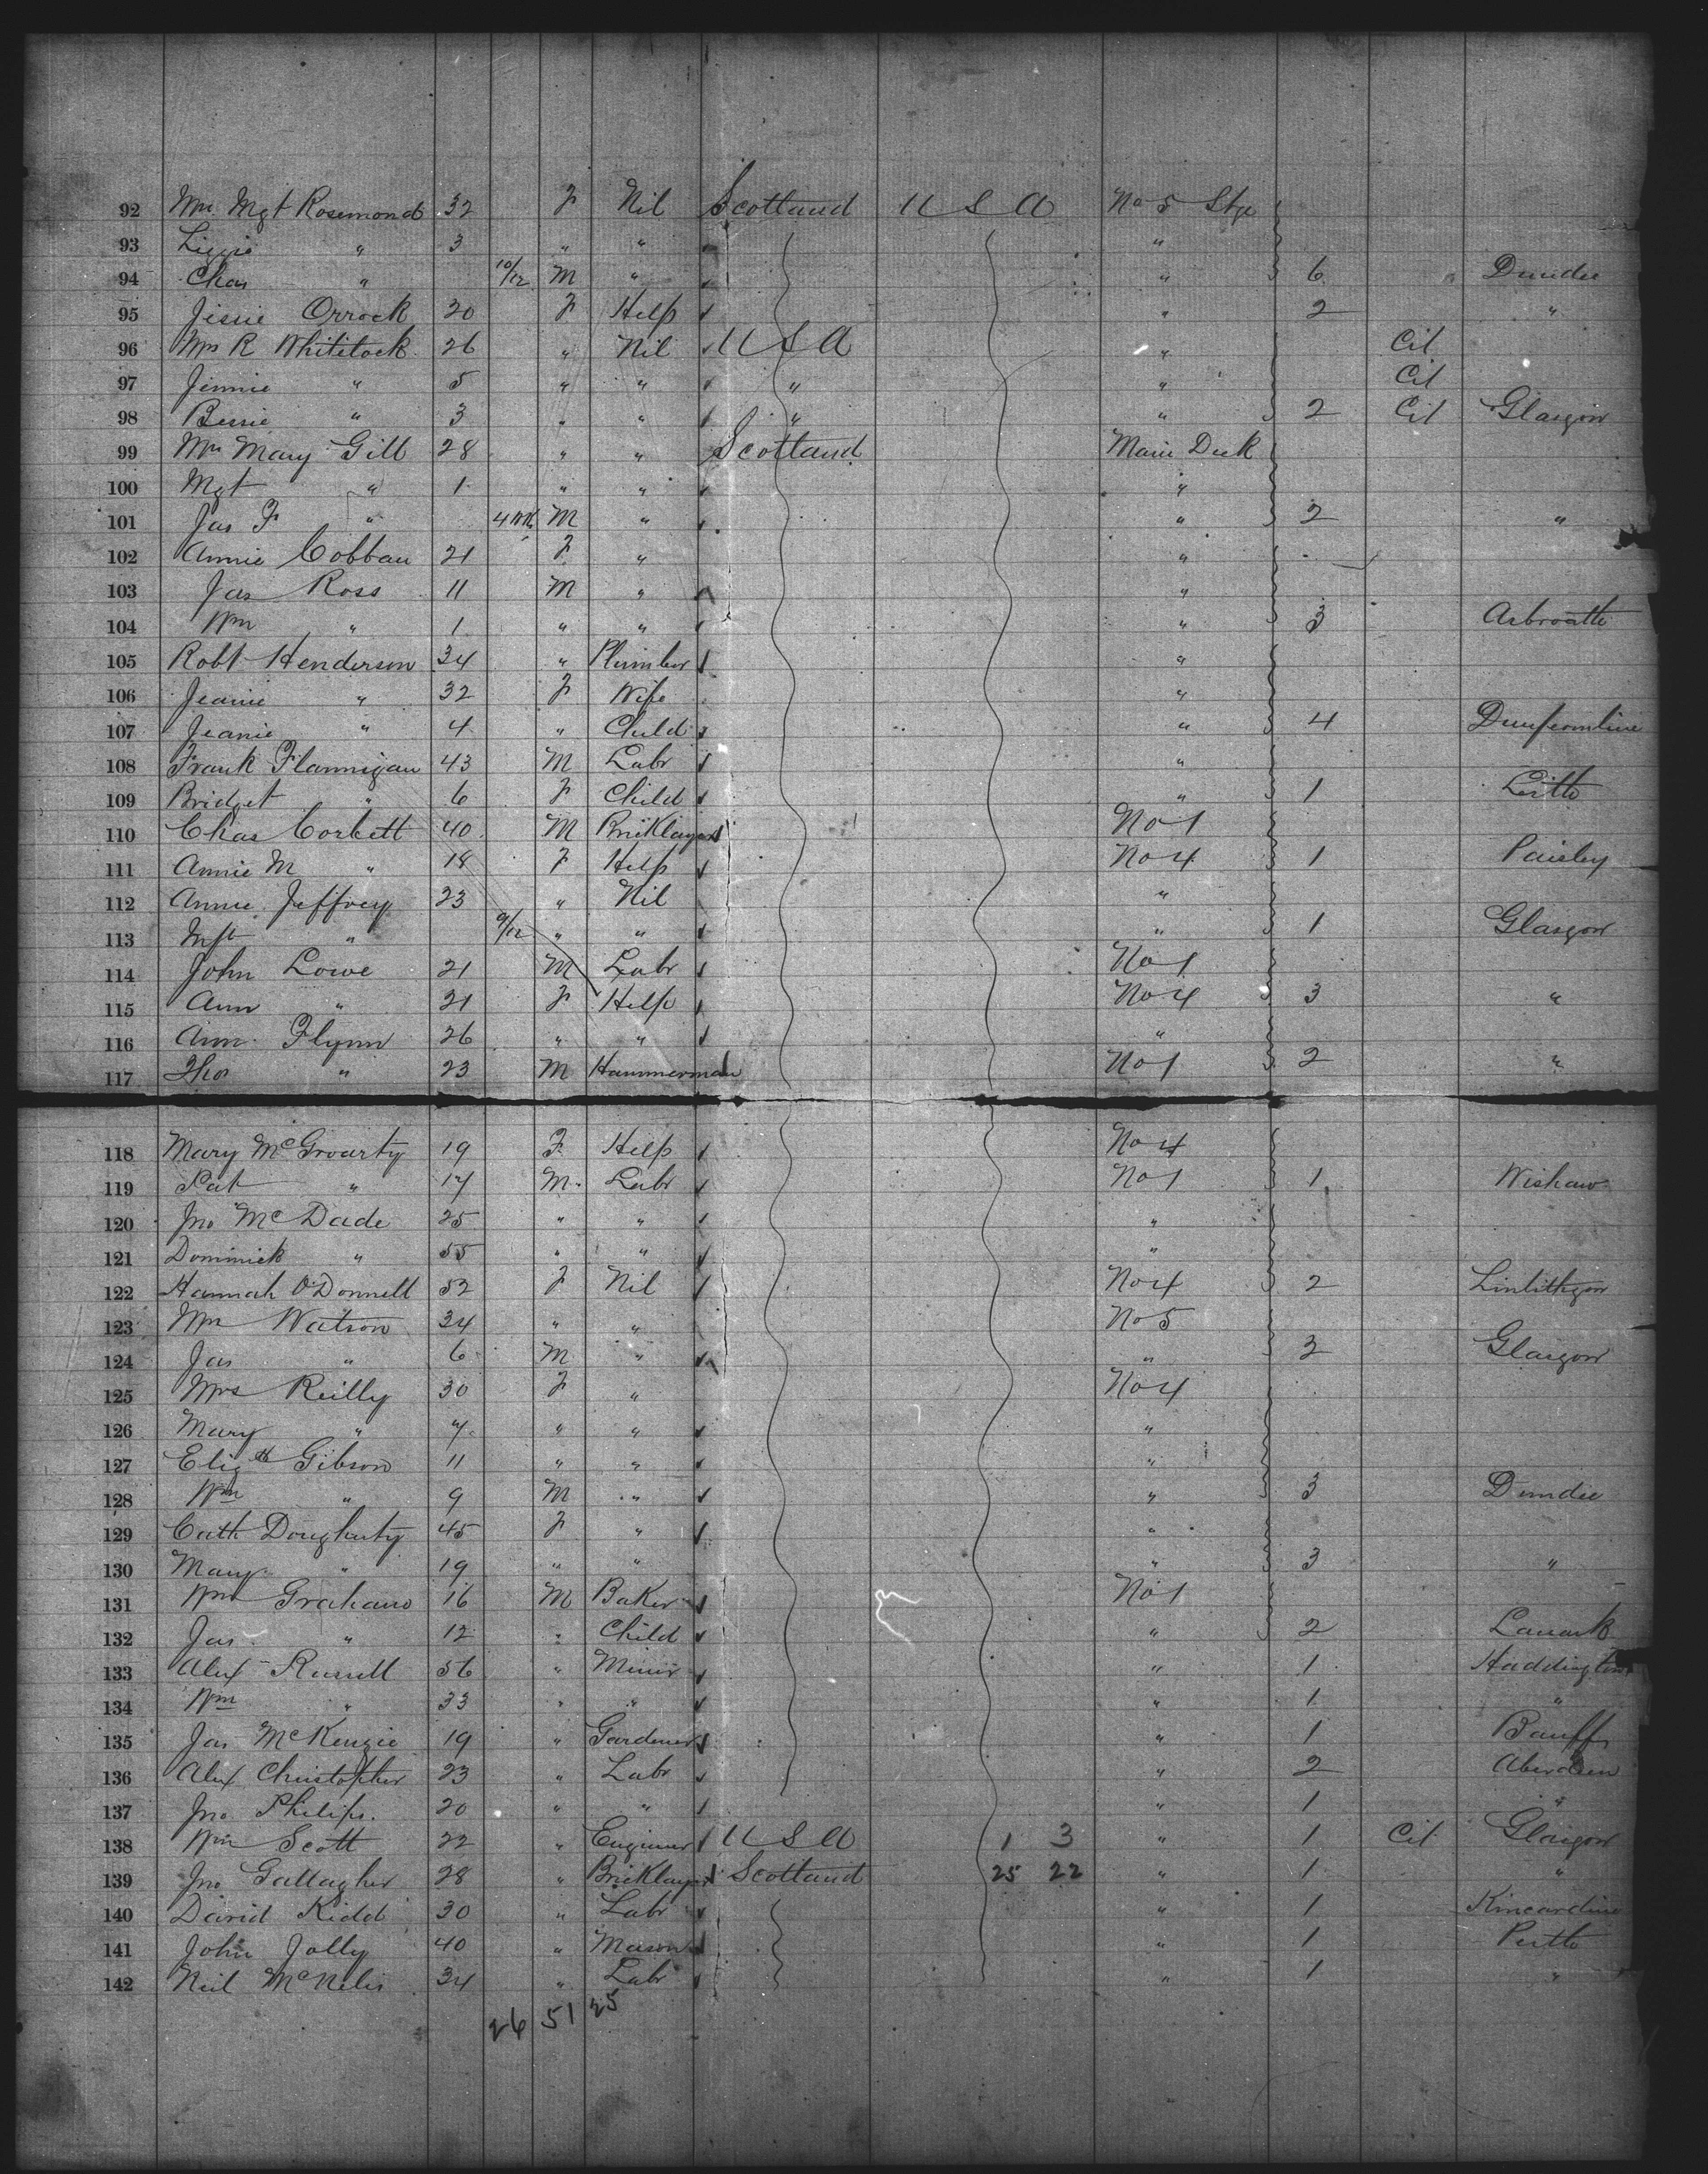 92 Mrs Mgt Rosemond 32 F Nil Scotland U S A No 5 Stge
93 Lizzie " 3 " " "
94 Chas " 10/12 M " " 6 Dundee
95 Jessie Orrock 20 F Help " 2 "
96 Mrs R Whitelock 26 " Nil U S A " Cit
97 Jinnie " 5 " " " " Cit
98 Bessie " 3 " " " " 2 Cit Glasgow
99 Mrs Mary Gill 28 " " Scotland Main Deck
100 Mgt " 1 " " "
101 Jas F " 4 Wk M " " 2 "
102 Annie Cobban 21 F " "
103 Jas Ross 11 M " "
104 Wm " 1 " " " 3 Arbroath
105 Robt Henderson 34 " Plumber "
106 Jeanie " 32 F Wife "
107 Jeanie " 4 " Child " 4 Dunfermline
108 Frank Flannigan 43 M Labr "
109 Bridget " 6 F Child " 1 Leith
110 Chas Corbett 40 M Bricklayer No 1
111 Annie M " 18 F Help No 4 1 Paisley
112 Annie Jeffrey 23 " Nil "
113 Inft " 9/12 " " " 1 Glasgow
114 John Lowe 21 M Labr No 1
115 Ann " 21 F Help No 4 3 "
116 Ann Flynn 26 " " "
117 Thos " 23 M Hammerman No 1 2 "
118 Mary McGroarty 19 F Help No 4
119 Pat " 17 M Labr No 1 1 Wishaw
120 Jno McDade 25 " " "
121 Dominick " 55 " " "
122 Hannah O'Donnell 52 F Nil No 4 2 Linlithgow
123 Mrs Watson 34 " " No 5
124 Jas " 6 M " " 2 Glasgow
125 Mrs Reilly 30 F " No 4
126 Mary " 7 " " "
127 Elizth Gibson 11 " " "
128 Wm " 9 M " " 3 Dundee
129 Cath Dougherty 45 F " "
130 Mary " 19 " " " 3 "
131 Wm Graham 16 M Baker No 1
132 Jas " 12 " Child " 2 Lanark
133 Alex Russell 56 " Miner " 1 Haddington
134 Wm " 33 " " " 1 "
135 Jas McKenzie 19 " Gardener " 1 Banff
136 Alex Christopher 23 " Labr " 2 Aberdeen
137 Jno Philips 20 " " " 1 "
138 Wm Scott 22 " Engineer U S A 1 3 " 1 Cit Glasgow
139 Jno Gallagher 28 " Bricklayer Scotland 25 22 " 1 "
140 David Kidd 30 " Labr " 1 Kincardine
141 John Jolly 40 " Mason " 1 Perth
142 Neil McNelis 34 " Labr " 1 "
26 51 25